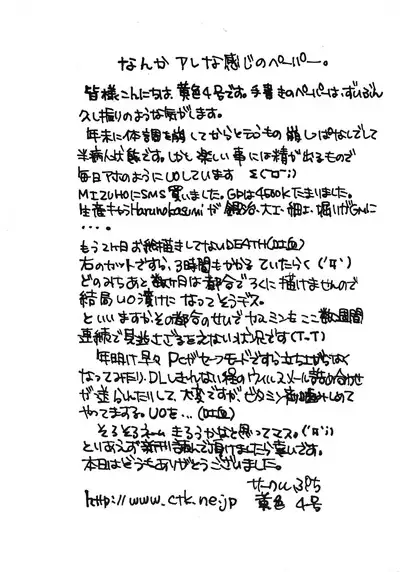 なんかアレな感じのペーパー。
皆様こんにちは、黄色4号です。手書きのペーパーは、ずいぶん
久し振りのような気がします。
年末に体調を崩してからと言うもの崩しっぱなしでして
半病人状態です。しかし楽しい事には精が出るもので
毎日アホのようにUOしています Σ(ﾟДﾟ;)
MIZUHOにSMS買いました。GPは4500Kたまいました。
生産キャラHarunokasumiが鍛冶・大工・細工・掘りがGMに
・・・。
もう2ヶ月お絵描きしてないDEATH(吐血)
右のカットですら、3時間もかかるていたらく('Д')
どのみちあと数ヶ月は都合でろくに描けませんので
結局UO漬けになってそうデス。
といいますか、その都合のせいでヤスミンをここ数週間
連続で見逃さざるをえない状況です(T-T)
年明け早々PCがセーフモードですら立ち上がらなく
なってみたり、DLしきれない程のウイルスメール詰め合わせ
が送らんたいして、大変ですが、ビタミン剤噛みしめて
やってまする。UOを…(吐血)
そろそろネームきろうかなと思ってマス。('Д';)
とりあえず新刊読んで頂けましたら幸いです。
本日はどうもありがとうございました。
http://www.ctk.ne.jp 黄色4号